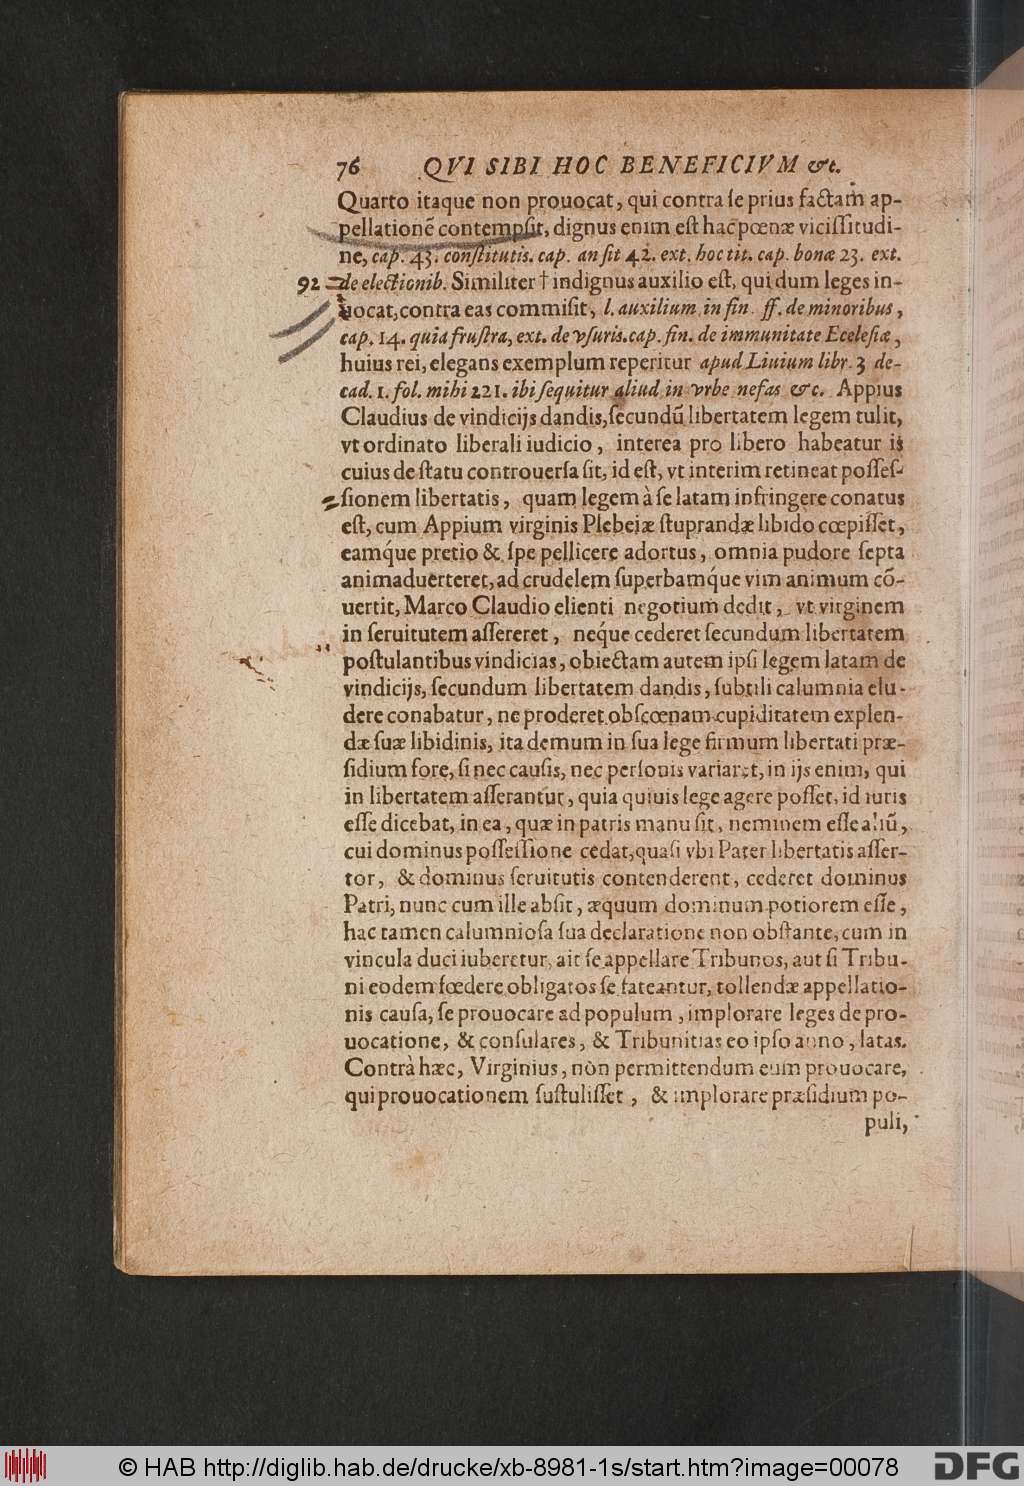 76 QVI SIBI HOC BENEFICIVM &c.
Quarto itaque non prouocat, qui contra ſe prius factam ap-
pellationē contempſit, dignus enim eſt hac pœnæ viciſſitudi-
ne, cap. 43. conſtitutis. cap. an ſit 42. ext. hoc tit. cap. bonæ 23. ext.
92 de electionib. Similiter † indignus auxilio eſt, qui dum leges in-
uocat, contra eas commiſit, l. auxilium in fin. ff. de minoribus,
cap. 14. quia fruſtra, ext. de vſuris. cap. fin. de immunitate Eceleſiæ,
huius rei, elegans exemplum reperitur apud Liuium libr. 3 de-
cad. 1. fol. mihi 221. ibi ſequitur aliud in vrbe nefas &c. Appius
Claudius de vindicijs dandis, ſecundū libertatem legem tulit,
vt ordinato liberali iudicio, interea pro libero habeatur is
cuius de ſtatu controuerſa ſit, id eſt, vt interim retineat poſſeſ-
ſionem libertatis, quam legem à ſe latam infringere conatus
eſt, cum Appium virginis Plebeiæ ſtuprandæ libido cœpiſſet,
eamq́ue pretio & ſpe pellicere adortus, omnia pudore ſepta
animaduerteret, ad crudelem ſuperbamq́ue vim animum cō-
uertit, Marco Claudio elienti negotium dedit, vt virginem
in ſeruitutem aſſereret, neq́ue cederet ſecundum libertatem
poſtulantibus vindicias, obiectam autem ipſi legem latam de
vindicijs, ſecundum libertatem dandis, ſubtili calumnia elu-
dere conabatur, ne proderet obſcœnam cupiditatem explen-
dæ ſuæ libidinis, ita demum in ſua lege firmum libertati præ-
ſidium fore, ſi nec cauſis, nec perſonis variaret, in ijs enim, qui
in libertatem aſſerantur, quia quiuis lege agere poſſet, id iuris
eſſe dicebat, in ea, quæ in patris manu ſit, neminem eſſe aliū,
cui dominus poſſeſſione cedat, quaſi vbi Pater libertatis aſſer-
tor, & dominus ſeruitutis contenderent, cederet dominus
Patri, nunc cum ille abſit, æquum dominum potiorem eſſe,
hac tamen calumnioſa ſua declaratione non obſtante, cum in
vincula duci iuberetur, ait ſe appellare Tribunos, aut ſi Tribu-
ni eodem fœdere obligatos ſe fateantur, tollendæ appellatio-
nis cauſa, ſe prouocare ad populum, implorare leges de pro-
uocatione, & conſulares, & Tribunitias eo ipſo anno, latas.
Contrà hæc, Virginius, nòn permittendum eum prouocare,
qui prouocationem ſuſtuliſſet, & implorare præſidium po-
puli,
© HAB http://diglib.hab.de/drucke/xb-8981-1s/start.htm?image=00078
DFG